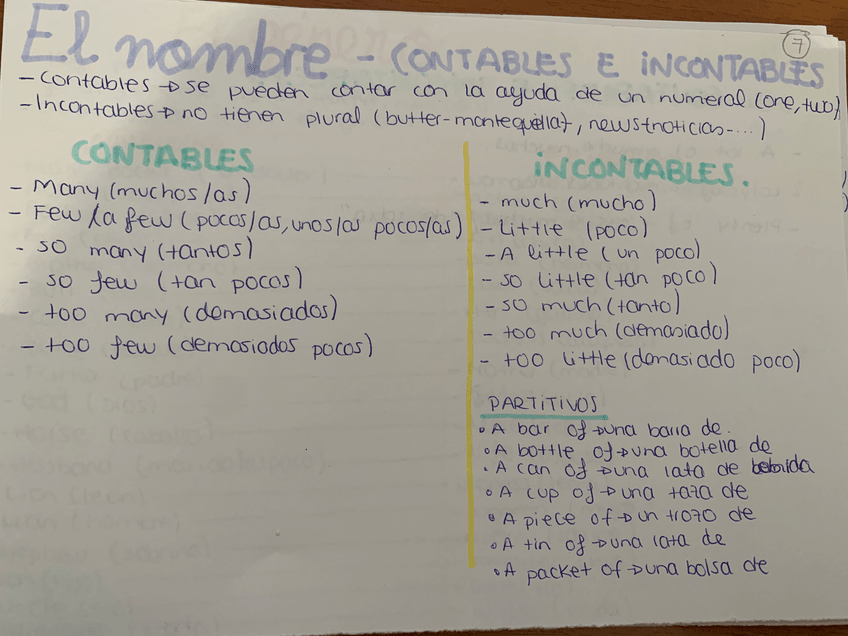 El nombre - CONTABLES E INCONTABLES
7
- Contables → se pueden contar con la ayuda de un numeral (one, two)
- Incontables → no tienen plural (butter-mantequilla), news+noticias-...)
CONTABLES
- Many (muchos/as)
- Few/a few (pocos/as, unos/as pocos/as)
- so many (tantos)
- so few (tan pocos)
- too many (demasiados)
- too few (demasiados pocos)
INCONTABLES.
- much (mucho)
- Little (poco)
- A little (un poco)
- so little (tan poco)
- so much (tanto)
- too much (demasiado)
- too little (demasiado poco)
PARTITIVOS
• A bar of → una barra de.
• A bottle of → una botella de
• A can of → una lata de bebida
• A cup of → una taza de
• A piece of → un trozo de
• A tin of → una lata de
• A packet of → una bolsa de